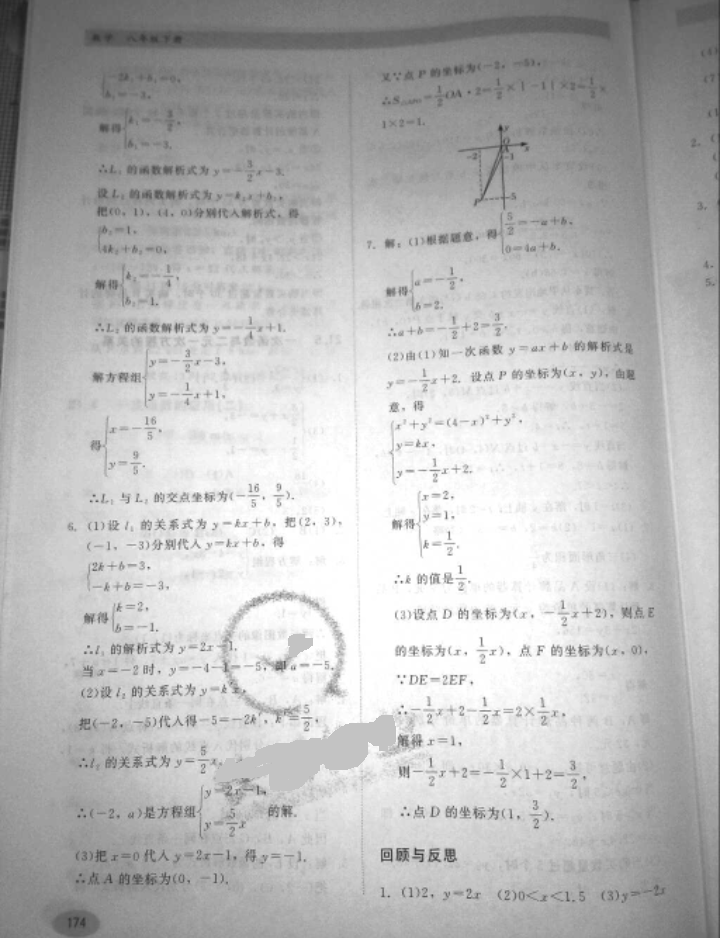 数学 八年级下册
{-2k₁+b₁=0,
b₁=-3,
解得{k₁=-3/2,
b₁=-3.
∴L₁的函数解析式为y=-3/2x-3.
设L₂的函数解析式为y=k₂x+b₂,
把(0,1),(4,0)分别代入解析式,得
{b₂=1,
4k₂+b₂=0,
解得{k₂=-1/4,
b₂=1.
∴L₂的函数解析式为y=-1/4x+1.
解方程组{y=-3/2x-3,
y=-1/4x+1,
得{x=-16/5,
y=9/5.
∴L₁与L₂的交点坐标为(-16/5,9/5).
6. (1)设l₁的关系式为y=kx+b,把(2,3),
(-1,-3)分别代入y=kx+b,得
{2k+b=3,
-k+b=-3,
解得{k=2,
b=-1.
∴l₁的解析式为y=2x-1.
当x=-2时,y=-4-1=-5,即a=-5.
(2)设l₂的关系式为y=k′x,
把(-2,-5)代入得-5=-2k′,k′=5/2,
∴l₂的关系式为y=5/2x.
∴(-2,a)是方程组{y=2x-1,
y=5/2x 的解.
(3)把x=0代入y=2x-1,得y=-1.
∴点A的坐标为(0,-1).
174
又∵点P的坐标为(-2,-5),
∴S△APO=1/2OA·2=1/2×|-1|×2=1/2×
1×2=1.
y
O
x
-2
A
-1
P
-5
7. 解:(1)根据题意,得{5/2=-a+b,
0=4a+b.
解得{a=-1/2,
b=2.
∴a+b=-1/2+2=3/2.
(2)由(1)知一次函数y=ax+b的解析式是
y=-1/2x+2. 设点P的坐标为(x,y),由题
意,得
{x²+y²=(4-x)²+y²,
y=kx,
y=-1/2x+2.
解得{x=2,
y=1,
k=1/2.
∴k的值是1/2.
(3)设点D的坐标为(x,-1/2x+2),则点E
的坐标为(x,1/2x),点F的坐标为(x,0),
∵DE=2EF,
∴-1/2x+2-1/2x=2×1/2x,
解得x=1,
则-1/2x+2=-1/2×1+2=3/2,
∴点D的坐标为(1,3/2).
回顾与反思
1. (1)2,y=2x (2)0<x<1.5 (3)y=-2x